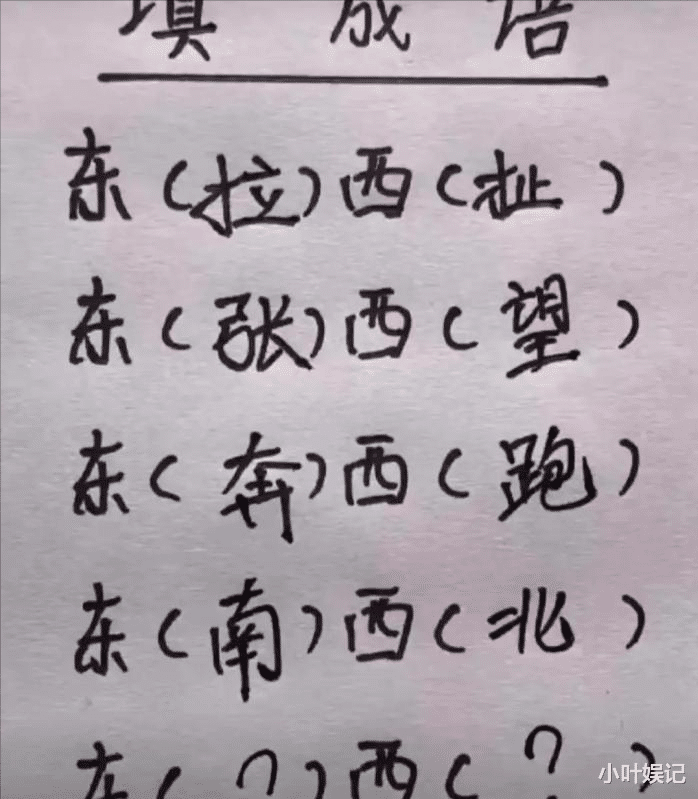 填成语
东(拉)西(扯)
东(张)西(望)
东(奔)西(跑)
东(南)西(北)
东(?)西(?)
小叶娱记